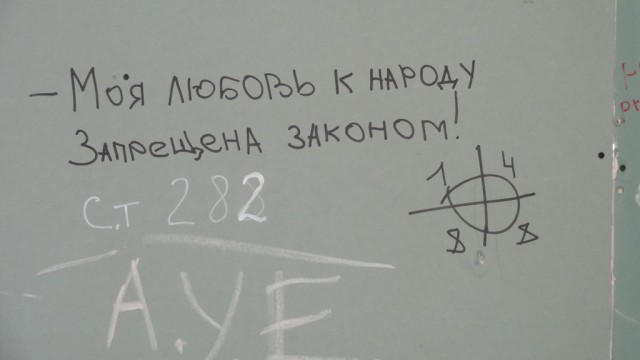 - Моя любовь к народу
Запрещена законом!
1 4
8 8
Ст 282
А.УЕ